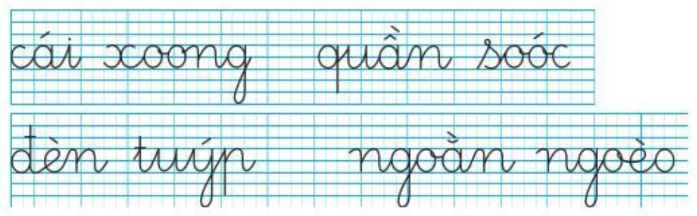 cái xoong quần soóc
đèn tuýp ngoằn ngoèo